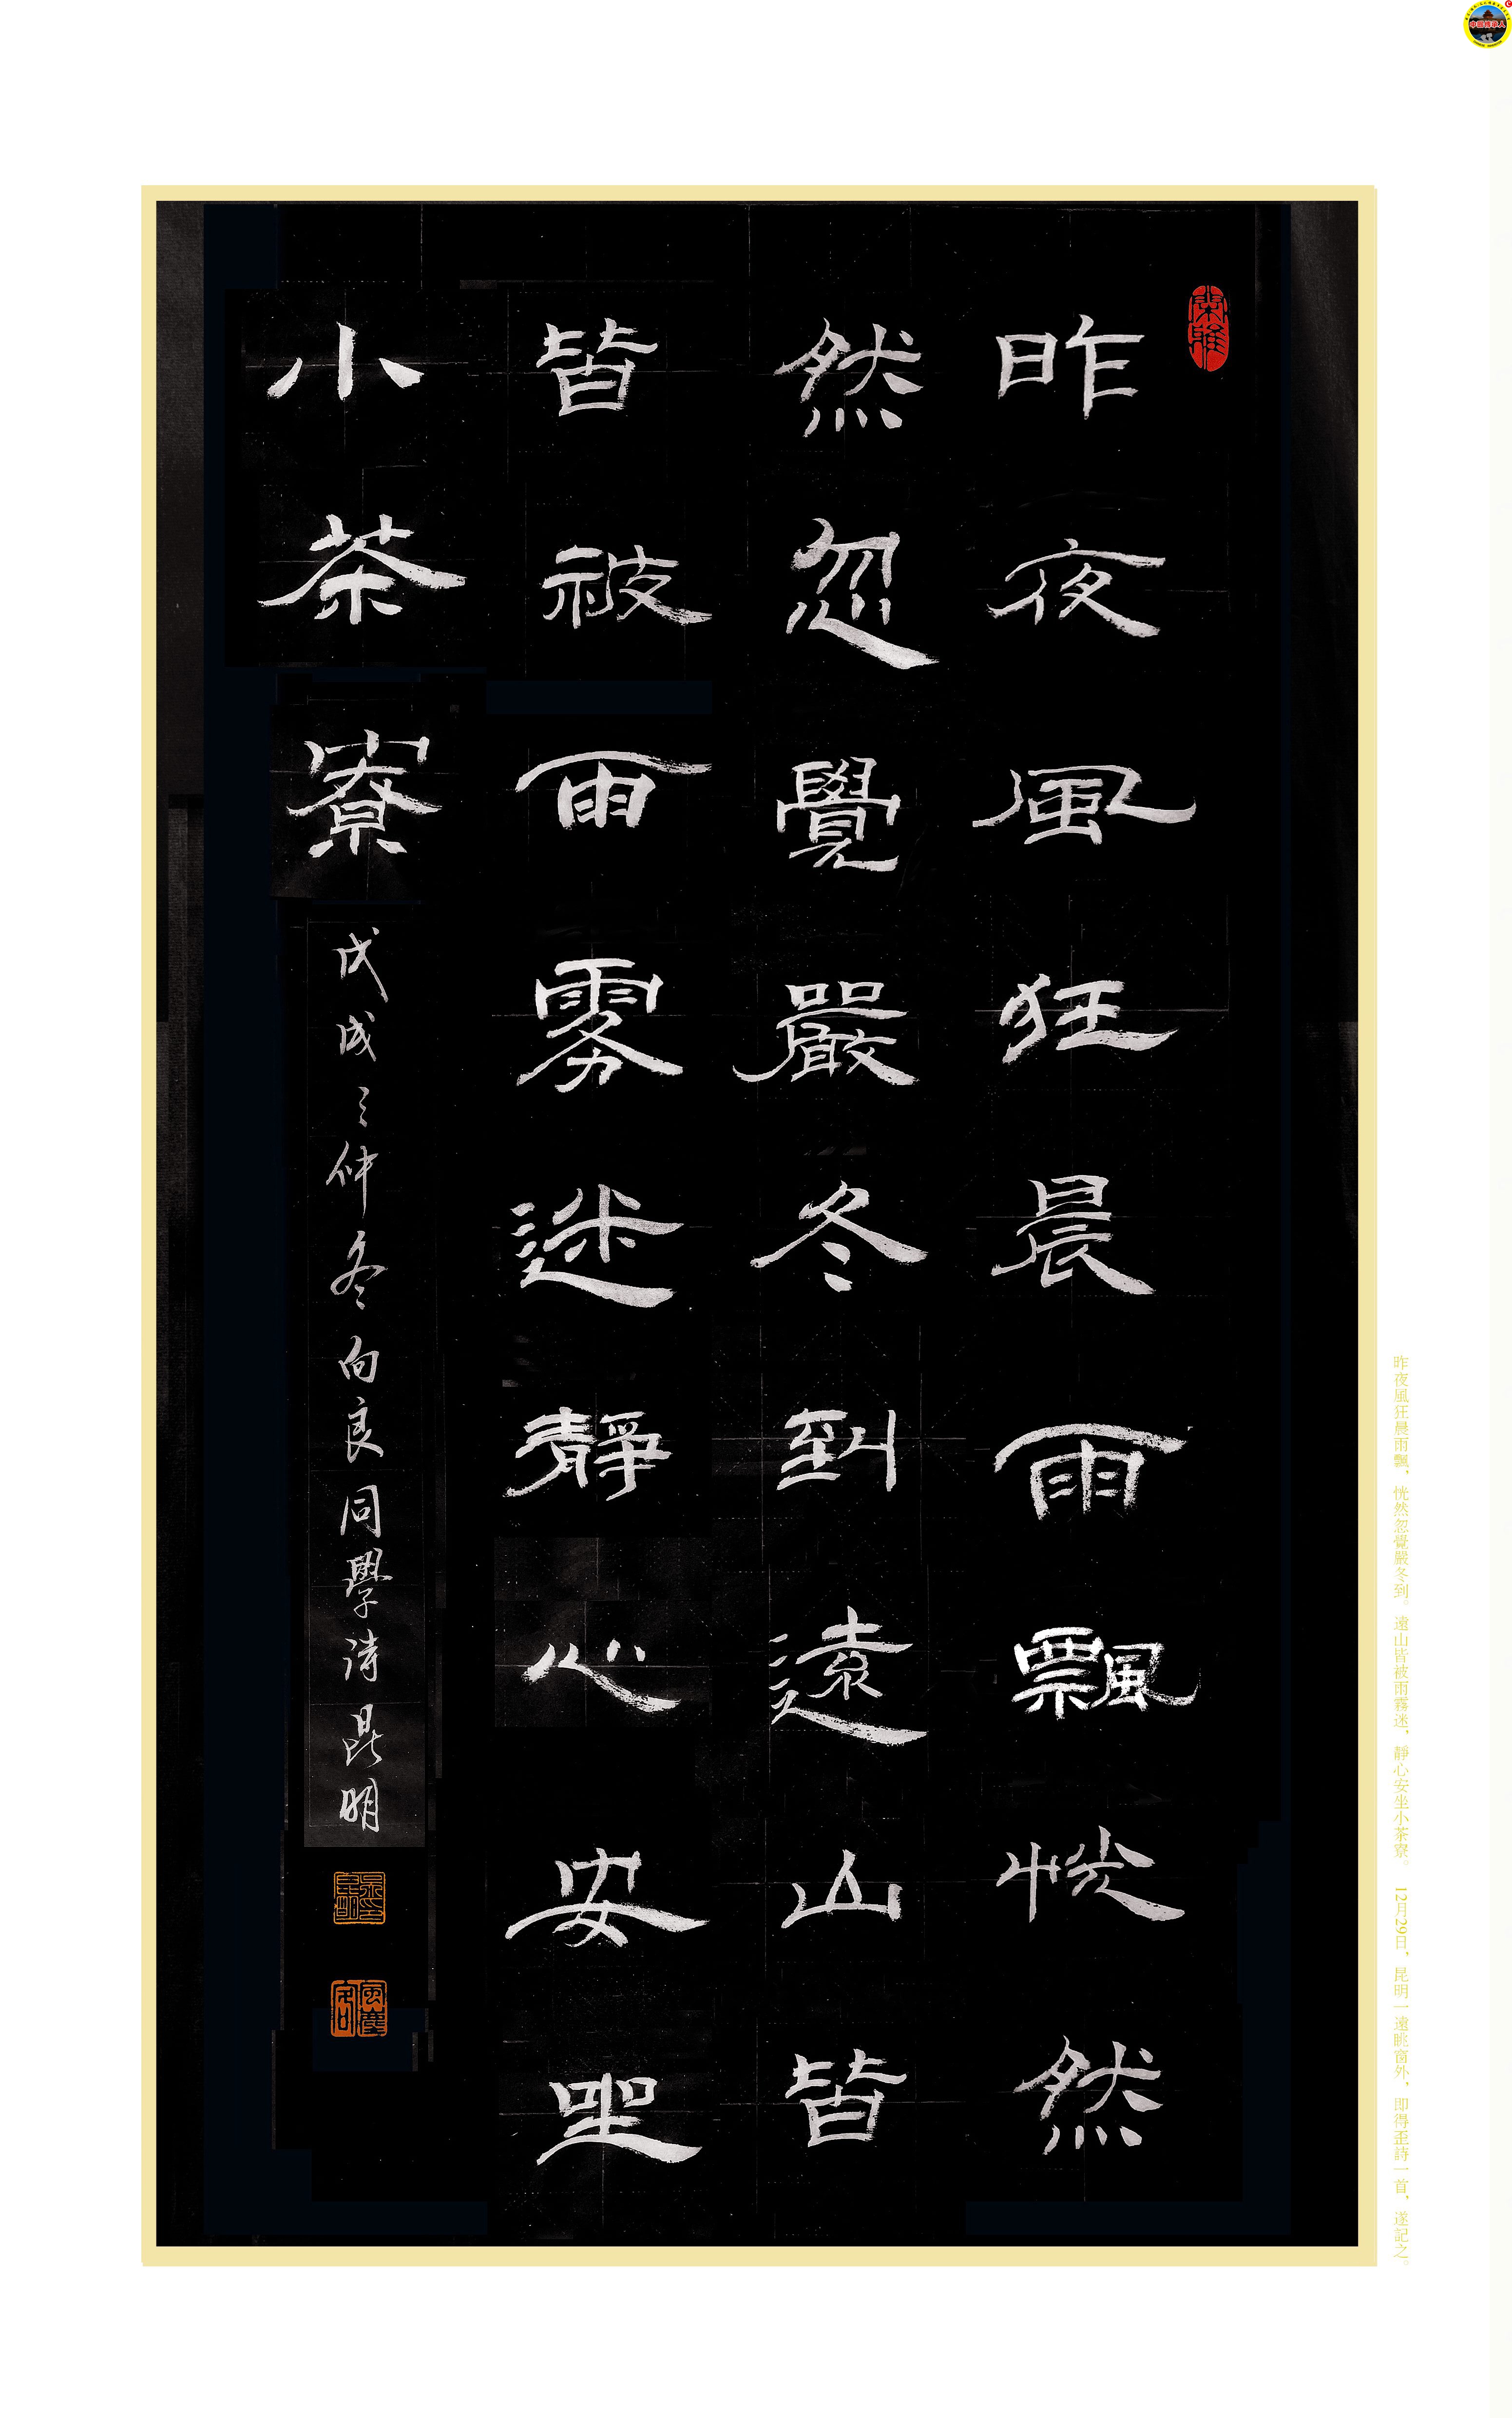 昨夜風狂晨雨飄恍然
然忽覺嚴冬到遠山皆
皆被雨霧迷靜心安坐
小茶寮
戊戌之仲冬向良同學詩昆明
昨夜風狂晨雨飄，恍然忽覺嚴冬到。遠山皆被雨霧迷，靜心安坐小茶寮。 12月29日，昆明一遠眺窗外，即得歪詩一首，遂記之。